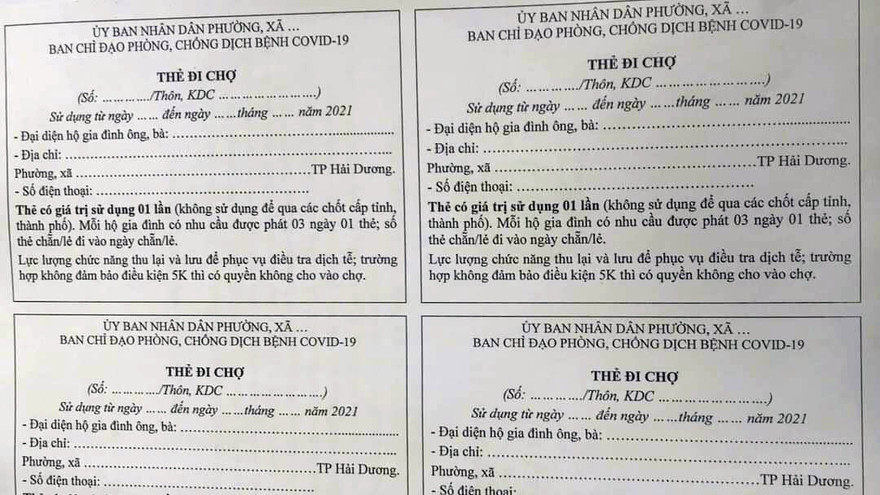 ỦY BAN NHÂN DÂN PHƯỜNG, XÃ ...
BAN CHỈ ĐẠO PHÒNG, CHỐNG DỊCH BỆNH COVID-19
THẺ ĐI CHỢ
(Số: ... ... ... .../Thôn, KDC ... ... ... ... ... ... ...)
Sử dụng từ ngày ... ... đến ngày ... ...tháng ... ... năm 2021
- Đại diện hộ gia đình ông, bà: ..........................................................
- Địa chỉ: ..........................................................
Phường, xã ..........................................................TP Hải Dương.
- Số điện thoại: ..........................................................
Thẻ có giá trị sử dụng 01 lần (không sử dụng để qua các chốt cấp tỉnh,
thành phố). Mỗi hộ gia đình có nhu cầu được phát 03 ngày 01 thẻ; số
thẻ chẵn/lẻ đi vào ngày chẵn/lẻ.
Lực lượng chức năng thu lại và lưu để phục vụ điều tra dịch tễ; trường
hợp không đảm bảo điều kiện 5K thì có quyền không cho vào chợ.
ỦY BAN NHÂN DÂN PHƯỜNG, XÃ ...
BAN CHỈ ĐẠO PHÒNG, CHỐNG DỊCH BỆNH COVID-19
THẺ ĐI CHỢ
(Số: ... ... ... .../Thôn, KDC ... ... ... ... ... ... ...)
Sử dụng từ ngày ... ... đến ngày ... ...tháng ... ... năm 2021
- Đại diện hộ gia đình ông, bà: ..........................................................
- Địa chỉ: ..........................................................
Phường, xã ..........................................................TP Hải Dương.
- Số điện thoại: ..........................................................
Thẻ có giá trị sử dụng 01 lần (không sử dụng để qua các chốt cấp tỉnh,
thành phố). Mỗi hộ gia đình có nhu cầu được phát 03 ngày 01 thẻ; số
thẻ chẵn/lẻ đi vào ngày chẵn/lẻ.
Lực lượng chức năng thu lại và lưu để phục vụ điều tra dịch tễ; trường
hợp không đảm bảo điều kiện 5K thì có quyền không cho vào chợ.
ỦY BAN NHÂN DÂN PHƯỜNG, XÃ ...
BAN CHỈ ĐẠO PHÒNG, CHỐNG DỊCH BỆNH COVID-19
THẺ ĐI CHỢ
(Số: ... ... ... .../Thôn, KDC ... ... ... ... ... ... ...)
Sử dụng từ ngày ... ... đến ngày ... ...tháng ... ... năm 2021
- Đại diện hộ gia đình ông, bà: ..........................................................
- Địa chỉ: ..........................................................
Phường, xã ..........................................................TP Hải Dương.
- Số điện thoại: ..........................................................
ỦY BAN NHÂN DÂN PHƯỜNG, XÃ ...
BAN CHỈ ĐẠO PHÒNG, CHỐNG DỊCH BỆNH COVID-19
THẺ ĐI CHỢ
(Số: ... ... ... .../Thôn, KDC ... ... ... ... ... ... ...)
Sử dụng từ ngày ... ... đến ngày ... ...tháng ... ... năm 2021
- Đại diện hộ gia đình ông, bà: ..........................................................
- Địa chỉ: ..........................................................
Phường, xã ..........................................................TP Hải Dương.
- Số điện thoại: ..........................................................